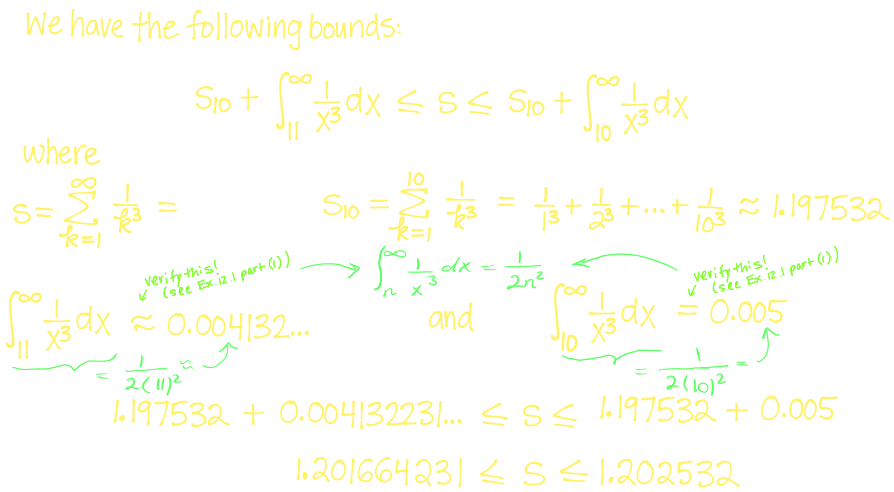 We have the following bounds:
S₁₀ + ∫₁₁^∞ 1/x³ dx ≤ S ≤ S₁₀ + ∫₁₀^∞ 1/x³ dx
where
S = ∑_{k=1}^∞ 1/k³ = S₁₀ = ∑_{k=1}^{10} 1/k³ = 1/1³ + 1/2³ + ... + 1/10³ ≈ 1.197532
verify this! (see Ex. 12.1 part (1)) ∫ₙ^∞ 1/x³ dx = 1/2n² verify this! (see Ex. 12.1 part (1))
∫₁₁^∞ 1/x³ dx ≈ 0.004132... and ∫₁₀^∞ 1/x³ dx = 0.005
= 1/2(11)² ≈ = 1/2(10)² =
1.197532 + 0.004132231... ≤ S ≤ 1.197532 + 0.005
1.201664231 ≤ S ≤ 1.202532